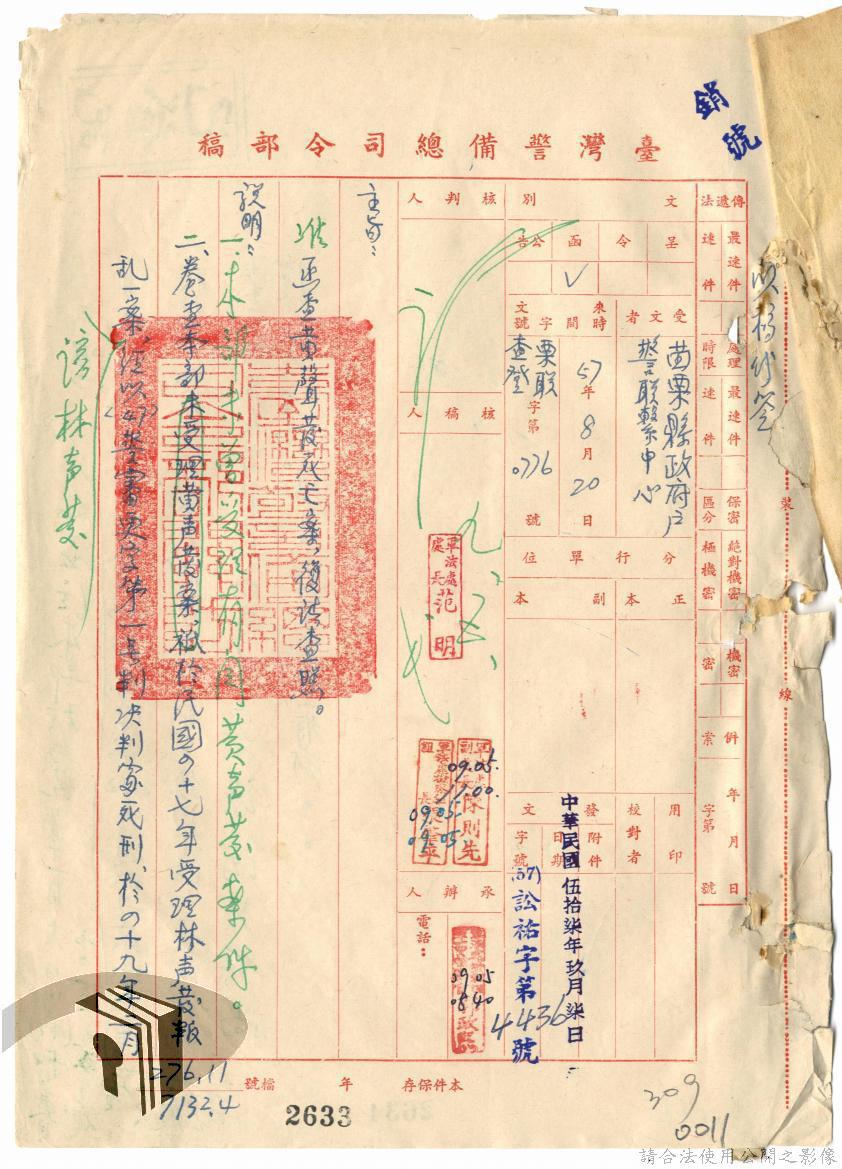 銷號
臺灣警備總司令部稿
以稿代簽
傳遞法
最速件
速件
處理時限
最速件
速件
保密區分
絕對機密
極機密
機密
密
併案
年月日
字第號
文別
呈
令
函
公告
V
受文者
苗栗縣政府戶警聯繫中心
來文
時間
57年8月20日
字號
栗聯查登字第0776號
分行單位
正本
副本
用印
校對者
發文
附件
日期
字號
中華民國伍拾柒年玖月柒日
(57)訟祐字第4436號
核判人
核稿人
軍法處處長范明
陳則先
09.05.
17.00.
09.05
09.05
承辦人
電話:
09.05
08.40
主旨:
准函查黃聲發死亡案,復請查照。
說明:
一、本部未曾受理黃聲發案件。
二、卷查本部未受理黃声發案,祇於民國四十七年受理林声發叛
乱一案,經以(47)警審更字第一号判決判處死刑,於四十九年二月
該林声發
276.11
7132.4
檔號
年
本件保存
2633
裝
線
309
0011
請合法使用公開之影像